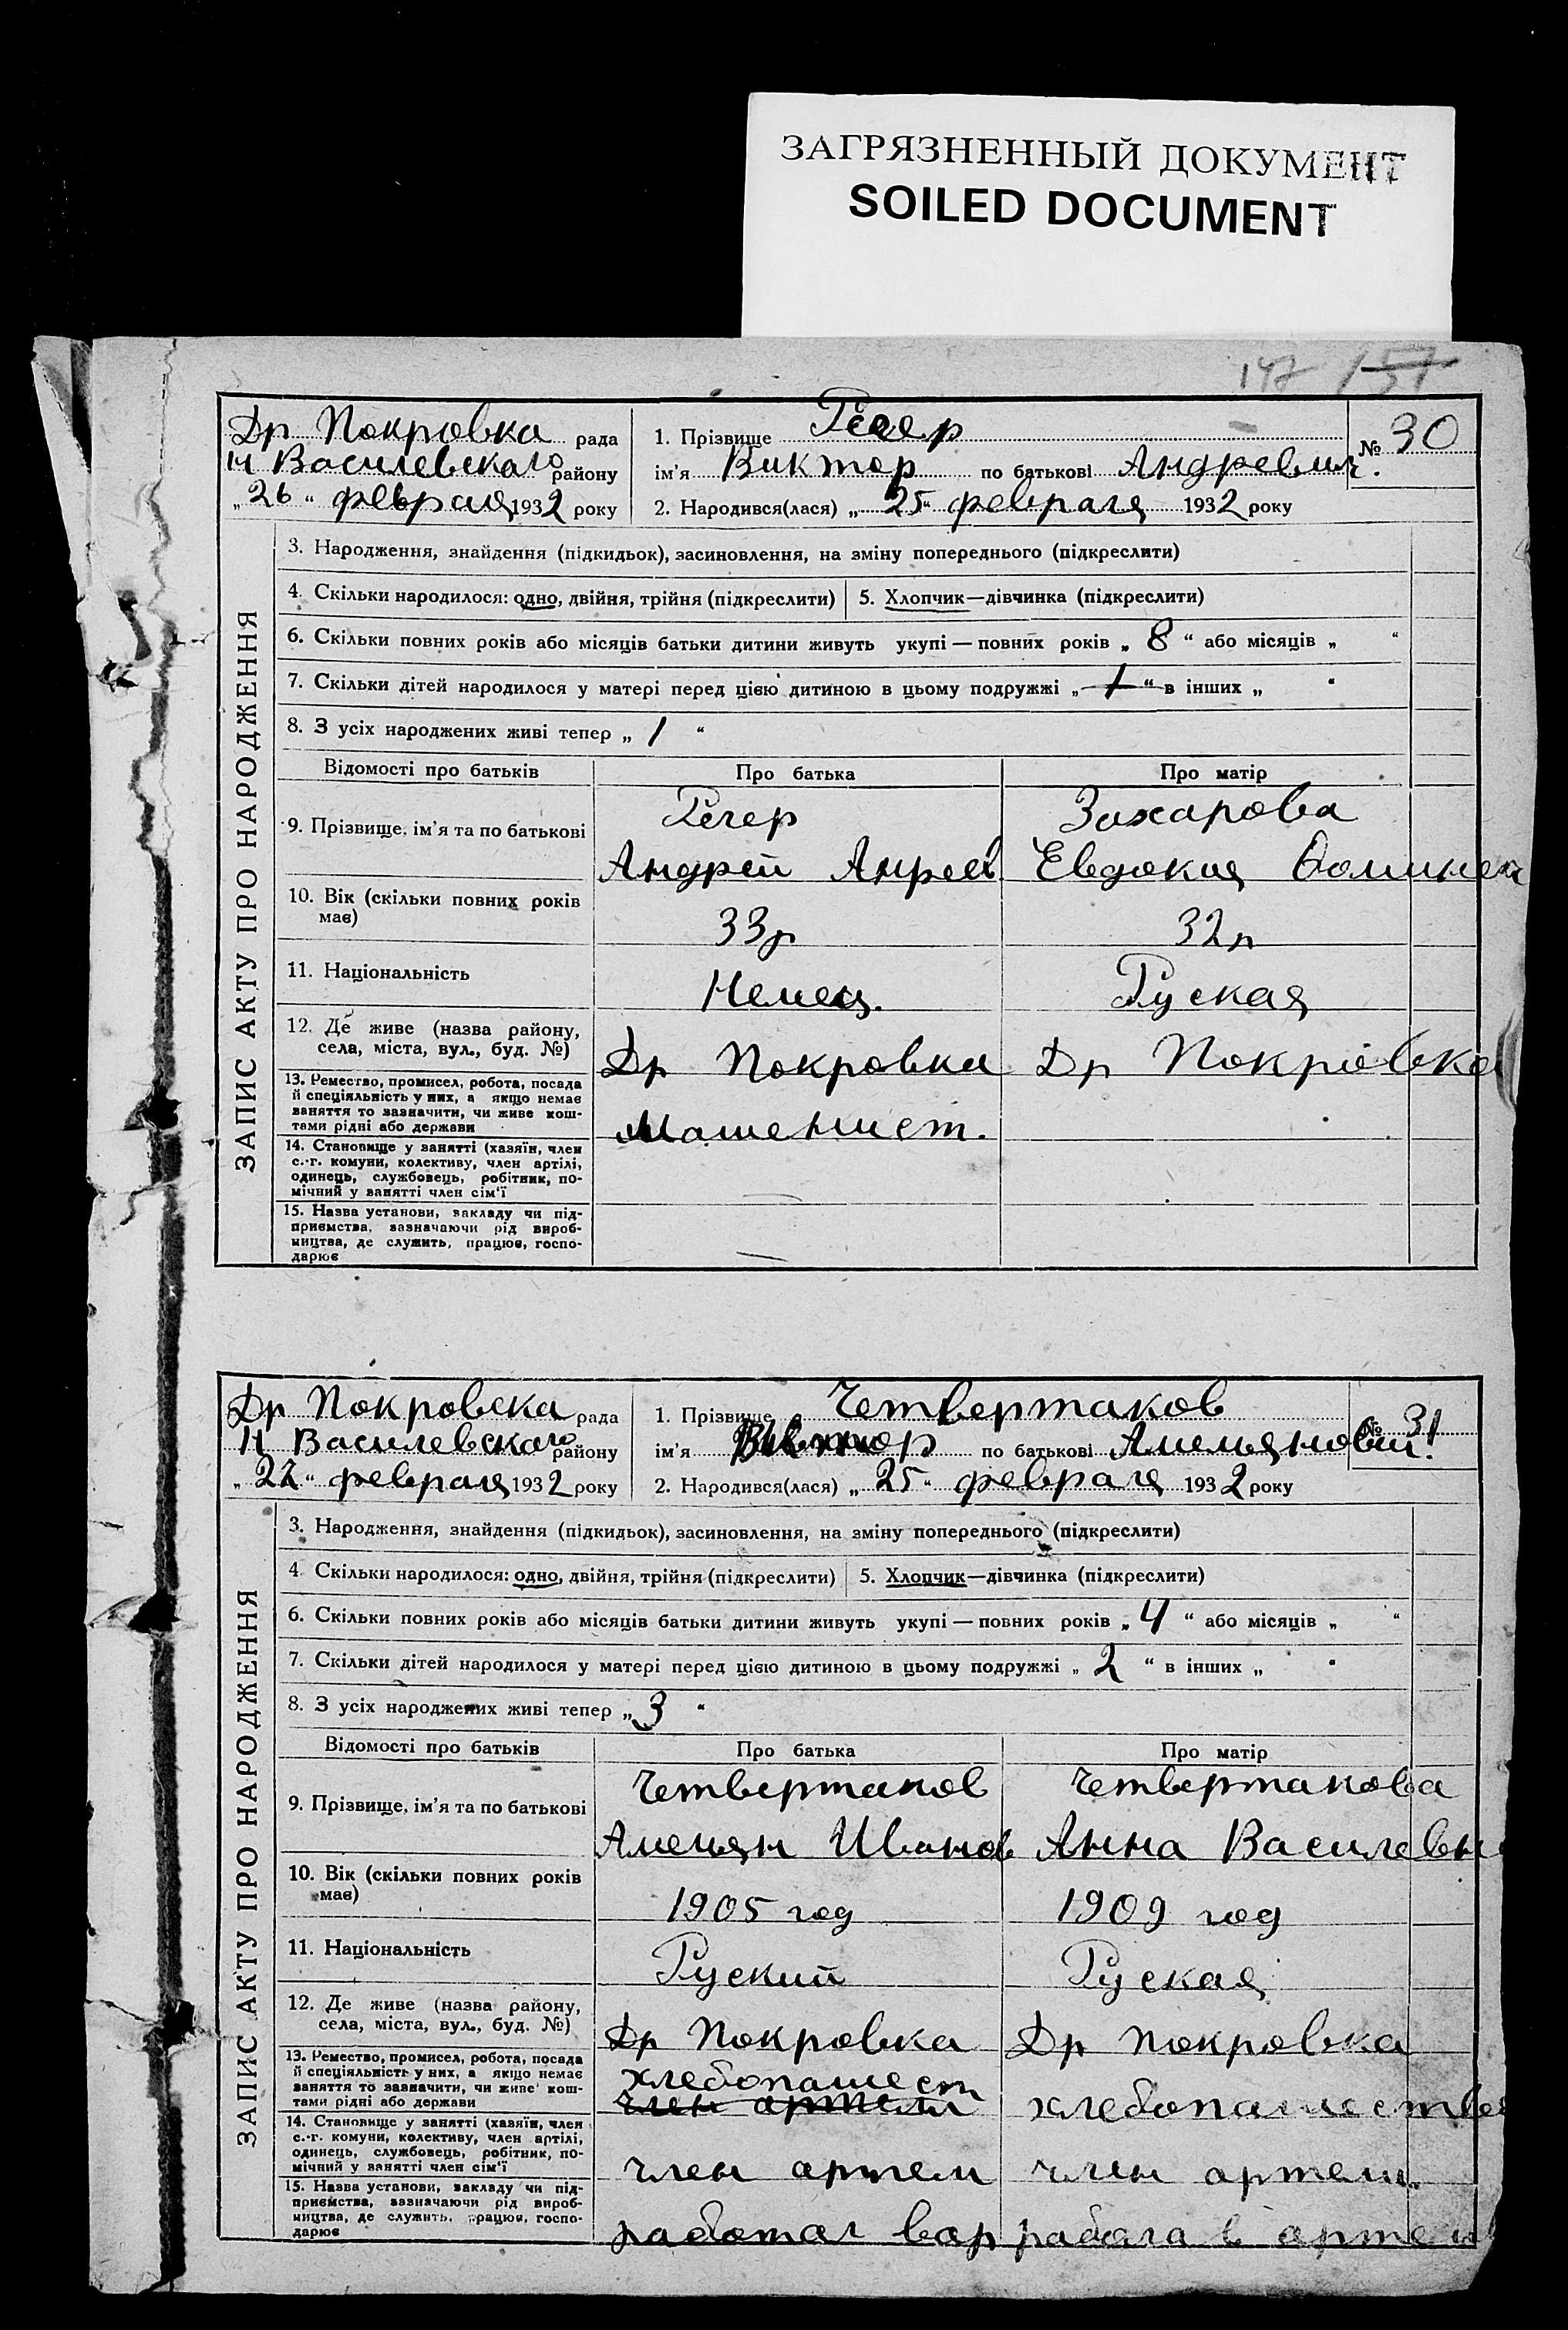 ЗАГРЯЗНЕННЫЙ ДОКУМЕНТ
SOILED DOCUMENT
147
Др Покровка рада
Н Василевскаго району
„26“ февраля 1932 року
1. Прізвище
№ 30
ім'я Виктор по батькові Андревич.
2. Народився(лася) „25“ февраля 1932 року
ЗАПИС АКТУ ПРО НАРОДЖЕННЯ
3. Народження, знайдення (підкидьок), засиновлення, на зміну попереднього (підкреслити)
4. Скільки народилося: одно, двійня, трійня (підкреслити) 5. Хлопчик—дівчинка (підкреслити)
6. Скільки повних років або місяців батьки дитини живуть укупі — повних років „ 8 “ або місяців „ “
7. Скільки дітей народилося у матері перед цією дитиною в цьому подружжі „ 1 “ в інших „ “
8. З усіх народжених живі тепер „ 1 “
Відомості про батьків Про батька Про матір
9. Прізвище, ім'я та по батькові
Регер Захарова
Андрей Анреев Евдокия
10. Вік (скільки повних років має)
33р 32р
11. Національність
Немец. Руская
12. Де живе (назва району, села, міста, вул., буд. №)
Др Покровка Др Покровка
13. Ремество, промисел, робота, посада й спеціяльність у них, а якщо немає заняття то зазначити, чи живе коштами рідні або держави
Машенист.
14. Становище у занятті (хазяїн, член с.-г. комуни, колективу, член артілі, одинець, службовець, робітник, помічний у занятті член сім'ї
15. Назва установи, закладу чи підприємства, зазначаючи рід виробництва, де служить, працює, господарює
Др Покровска рада
Н Василевскаго району
„22“ февраля 1932 року
1. Прізвище Четвертаков
№ 31
ім'я по батькові Амельянович.
2. Народився(лася) „25“ февраля 1932 року
ЗАПИС АКТУ ПРО НАРОДЖЕННЯ
3. Народження, знайдення (підкидьок), засиновлення, на зміну попереднього (підкреслити)
4. Скільки народилося: одно, двійня, трійня (підкреслити) 5. Хлопчик—дівчинка (підкреслити)
6. Скільки повних років або місяців батьки дитини живуть укупі — повних років „ 4 “ або місяців „ “
7. Скільки дітей народилося у матері перед цією дитиною в цьому подружжі „ 2 “ в інших „ “
8. З усіх народжених живі тепер „ 3 “
Відомості про батьків Про батька Про матір
9. Прізвище, ім'я та по батькові
Четвертаков Четвертакова
Амельян Иванов Анна Василевн
10. Вік (скільки повних років має)
1905 год 1909 год
11. Національність
Руский Руская
12. Де живе (назва району, села, міста, вул., буд. №)
Др Покровка Др Покровка
13. Ремество, промисел, робота, посада й спеціяльність у них, а якщо немає заняття то зазначити, чи живе коштами рідні або держави
хлебопашест
член артели хлебопашество
14. Становище у занятті (хазяїн, член с.-г. комуни, колективу, член артілі, одинець, службовець, робітник, помічний у занятті член сім'ї
член артели член артели.
15. Назва установи, закладу чи підприємства, зазначаючи рід виробництва, де служить, працює, господарює
работал вар работа в артели